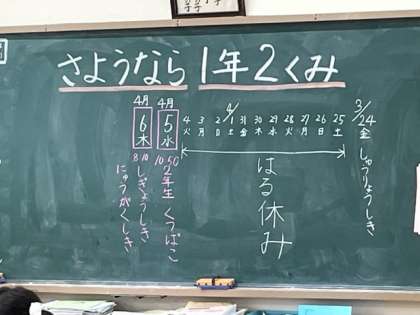 さようなら 1年2くみ
3/24 金 しゅうりょうしき
25 土
26 日
27 月
28 火
29 水
30 木
31 金
4/1 土
2 日
3 月
4 火
はる休み
4月 5 水
10:50
2年生 くつばこ
4月 6 木
8:10
しぎょうしき
にゅうがくしき